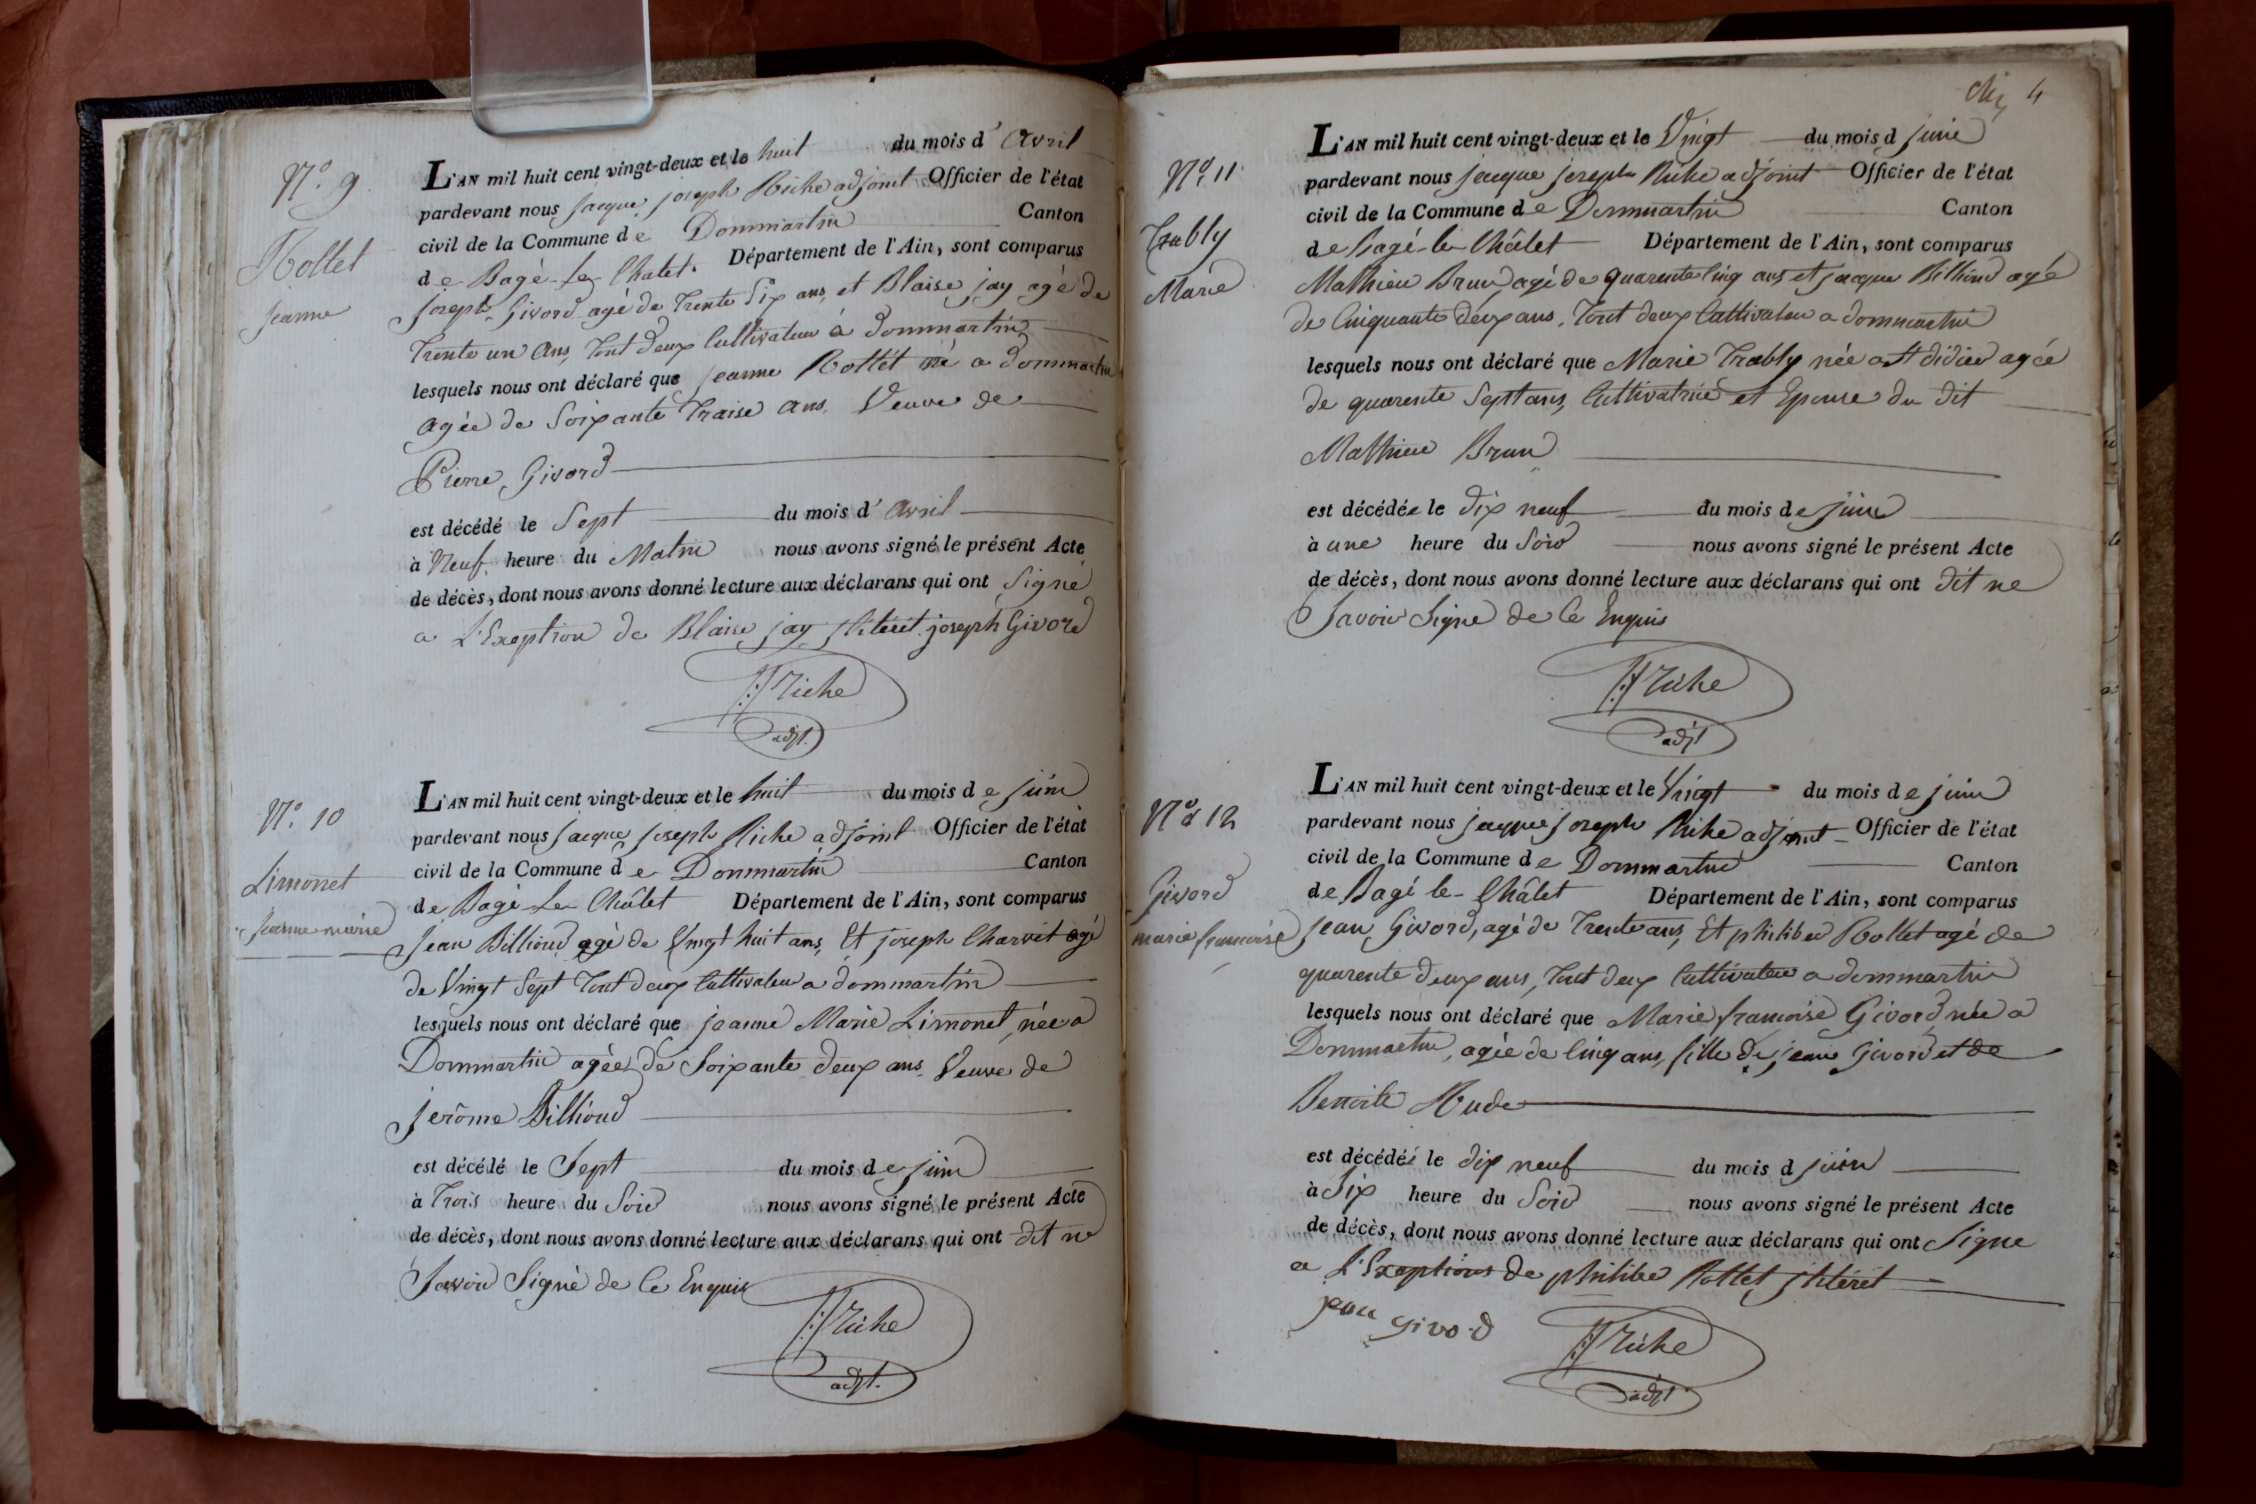 N.° 9
Rollet
jeanne
L'AN mil huit cent vingt-deux et le huit du mois d' avril
pardevant nous jacque joseph Riche adjoint Officier de l'état
civil de la Commune de Dommartin Canton
de Bagé Le Chalet. Département de l'Ain, sont comparus
joseph Givord agé de Trente Six ans, et Blaise jay agé de
Trente un ans, tout deux Cultivateur à dommartin
lesquels nous ont déclaré que jeanne Rollet né a dommartin
agée de Soixante Traise ans, Veuve de
Pierre Givord
est décédé le Sept du mois d' avril
à Neuf heure du Matin nous avons signé le présent Acte
de décès, dont nous avons donné lecture aux déclarans qui ont Signé
a L'Exeption de Blaise jay jlliteré. joseph Givord
JJRiche
adjt.
N.° 10
Limonet
jeanne marie
L'AN mil huit cent vingt-deux et le huit du mois de juin
pardevant nous jacque joseph Riche adjoint Officier de l'état
civil de la Commune de Dommartin Canton
de Bagé Le Châlet Département de l'Ain, sont comparus
Jean Billioud agé de Vingt huit ans, Et joseph Charvet agé
de Vingt Sept tout deux Cultivateur a dommartin
lesquels nous ont déclaré que jeanne Marie Limonet, née a
Dommartin agée de Soixante deux ans, Veuve de
jerôme Billioud
est décédé le Sept du mois de juin
à Trois heure du Soir nous avons signé le présent Acte
de décès, dont nous avons donné lecture aux déclarans qui ont dit ne
Savoir Signé de Ce Enquis
JJRiche
adjt.
4
N.° 11
Trably
Marie
L'AN mil huit cent vingt-deux et le Vingt du mois d juin
pardevant nous jacque joseph Riche adjoint Officier de l'état
civil de la Commune de Dommartin Canton
de Bagé le Châlet Département de l'Ain, sont comparus
Mathieu Brun, agé de quarente Cinq ans, et jacque Billioud agé
de Cinquante deux ans, Tout deux Cultivateur a dommartin
lesquels nous ont déclaré que Marie Trably née a St didier agée
de quarente Sept ans, Cultivatrice et Epouse du dit
Mathieu Brun
est décédée le dix neuf du mois de juin
à une heure du Soir nous avons signé le présent Acte
de décès, dont nous avons donné lecture aux déclarans qui ont dit ne
Savoir Signe de Ce Enquis
JJRiche
adjt
N.° 12
Givord
marie francoise
L'AN mil huit cent vingt-deux et le Vingt du mois de juin
pardevant nous jacque joseph Riche adjoint Officier de l'état
civil de la Commune de Dommartin Canton
de Bagé le Châlet Département de l'Ain, sont comparus
jean Givord, agé de Trente ans, Et philiber Rollet agé de
quarente deux ans, tout deux Cultivateur a dommartin
lesquels nous ont déclaré que Marie francoise Givord née a
Dommartin, agée de Cinq ans, fille de jean Givord et de
Benoite Rude
est décédée le dix neuf du mois d juin
à Six heure du Soir nous avons signé le présent Acte
de décès, dont nous avons donné lecture aux déclarans qui ont Signe
a L'Exeptions de philiber Rollet jlliterét
jean givord
JJRiche
adjt